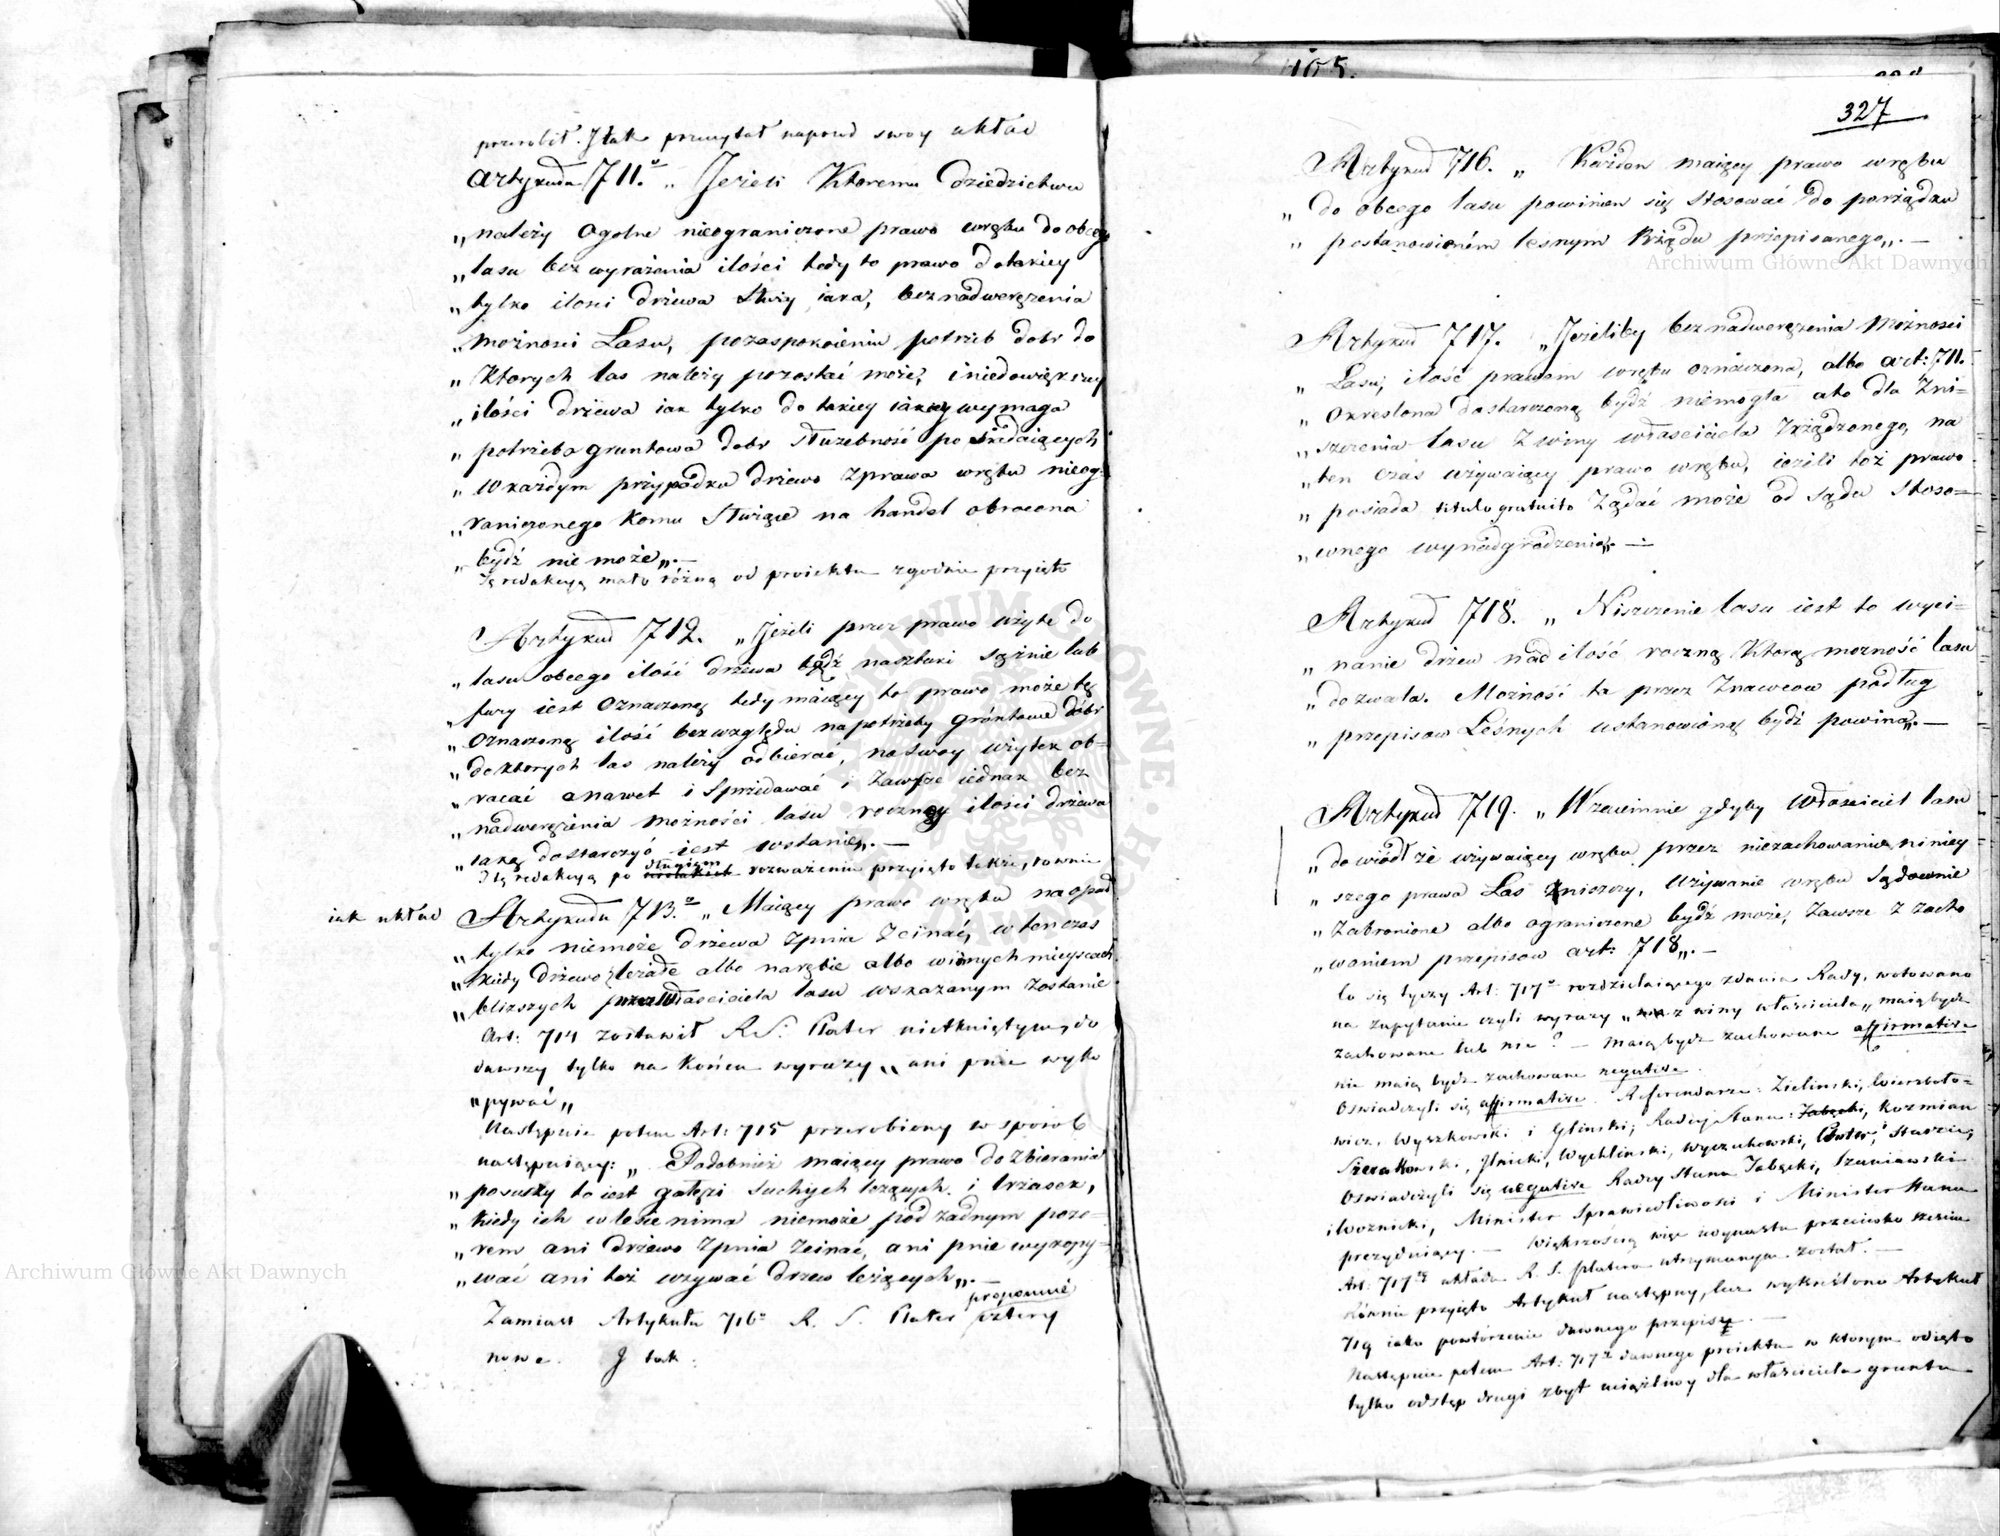 przerobił. J tak przeczytał naprzód swoy układ
Artykułu 711.º „ Jeżeli Ktoremu dziedzictwu
„ należy Ogolne nieograniczone prawo wrębu do obcego
„ lasu bez wyrażenia ilości tedy to prawo do takiey
„ tylko ilosci drzewa służy iaka, bez nadwerężenia
„ możnosci Lasu, po zaspokoieniu potrzeb dobr do
„ Ktorych las należy pozostać może, i niedowiększey
„ ilości drzewa iak tylko do takiey iakiey wymaga
„ potrzeba gruntowa dobr Służebność posiadaiących
„ W każdym przypadku drzewo z prawa wrębu nieog-
„ raniczonego Komu Służące na handel obrocone
„ bydź nie może„. —
Tę redakcyą mało różną od proiektu zgodnie przyięto
Artykuł 712. „ Jeżeli przez prawo użyte do
„ lasu obcego ilość drzewa bądź na sztuki sążnie lub
„ fury iest Oznaczoną tedy maiący to prawo może tę
„ Oznaczoną ilość bez względu na potrzeby gróntowe dóbr
„ do ktorych las należy odbierać, na swoy użytek ob-
„ racać a nawet i Sprzedawać i Zawsze iednak bez
„ nadwerężenia możności lasu roczney ilości drzewa
„ iaką dostarczyć iest wstanie„. —
J tę redakcyą po długiem rozważeniu przyięto także, rownie
iak układ Artykułu 713.º „ Maiący prawo wrębu na opad
„ tylko niemoże drzewa z pnia Zcinać, w tenczas
„ kiedy drzewo leżałe albo narębie albo w innych mieyscach
„ bliższych przez Właściciela lasu wskazanym Zostanie
Art: 714 zostawił R. S: Plater nietkniętym, do
dawszy tylko na Końcu wyrazy „ ani pnie wyko
„ pywać „
Następnie potem Art: 715 przerobiony w sposob
następuiący: „ Podobnież maiący prawo do zbierania
„ posuszy to iest gałęzi Suchych leżących i trzasek,
„ kiedy ich w lesie nima niemoże pod żadnym pozo-
„ rem ani drzewo Z pnia Zcinać, ani pnie wykopy-
„ wać ani też używać drzew leżących„. —
Zamiast Artykułu 716º R. S. Plater proponuie cztery
nowe. J tak:
105.
327
Artykuł 716. „ Każden maiący prawo wrębu
„ do obcego lasu powinien się Stosować do porządku
„ postanowieném lesnym Rządu przepisanego„. —
Artykuł 717. „ Jeżeliby bez nadwerężenia Możnosci
„ Lasu, ilość prawem wrębu oznaczona, albo art: 711.
„ Okreslona dostarczoną bydź niemogła a to dla Zni-
„ szczenia lasu Z winy właściciela Zrządzonego, na
„ ten czas używaiący prawo wrębu, ieżeli toż prawo
„ posiada titulo gratuito Żądać może od Sądu Stoso-
„ wnego wynadgrodzenia„. —
Artykuł 718. „ Niszczenie lasu iest to wyci-
„ nanie drzew nad ilość roczną Ktorą możność lasu
„ dozwala. Możność ta przez Znawcow podług
„ przepisow Leśnych ustanowioną bydź powina„. —
Artykuł 719. „ Wzaiemnie gdyby Właściciel lasu
„ dowiódł że używaiący wrębu przez niezachowanie niniey-
„ szego prawa Las Zniszczy, Używanie wrębu Sądownie
„ Zabronione albo ograniczone bydź może, Zawsze z zacho
„ waniem przepisow art: 718„. —
Co się tyczy Art: 717º rozdzielaiącego zdania Rady, wotowano
na zapytanie czyli wyrazy „ z winy właściciela„ maią bydz
zachowane lub nie? — Maią bydz zachowane affirmative
nie maią bydz zachowane negative.
Oswiadczyli się affirmative Referendarze: Zielinski, Wierzboło-
wicz, Wyszkowski i Glinski; Radcy Stanu: Kozmian
Szczakowski, Jlnicki, Wychlinski, Wyczechowski, Plater, i Staszic;
Oswiadczyli się negative Radcy Stanu Jabęcki, Szaniawski
i Woznicki, Minister Sprawiedliwosci i Minister Stanu
prezyduiący. — Większością więc iedynastu przeciwko
Art: 717ty układu R. S. Platera utrzymanym został. —
Równie przyięto Artykuł następny, lecz wykreślono Artykuł
719 iako powtórzenie dawnego przepisu. —
Następnie potem Art: 717º dawnego proiektu w ktorym odięto
tylko odstęp drugi zbyt uciążliwy dla właściciela gruntu